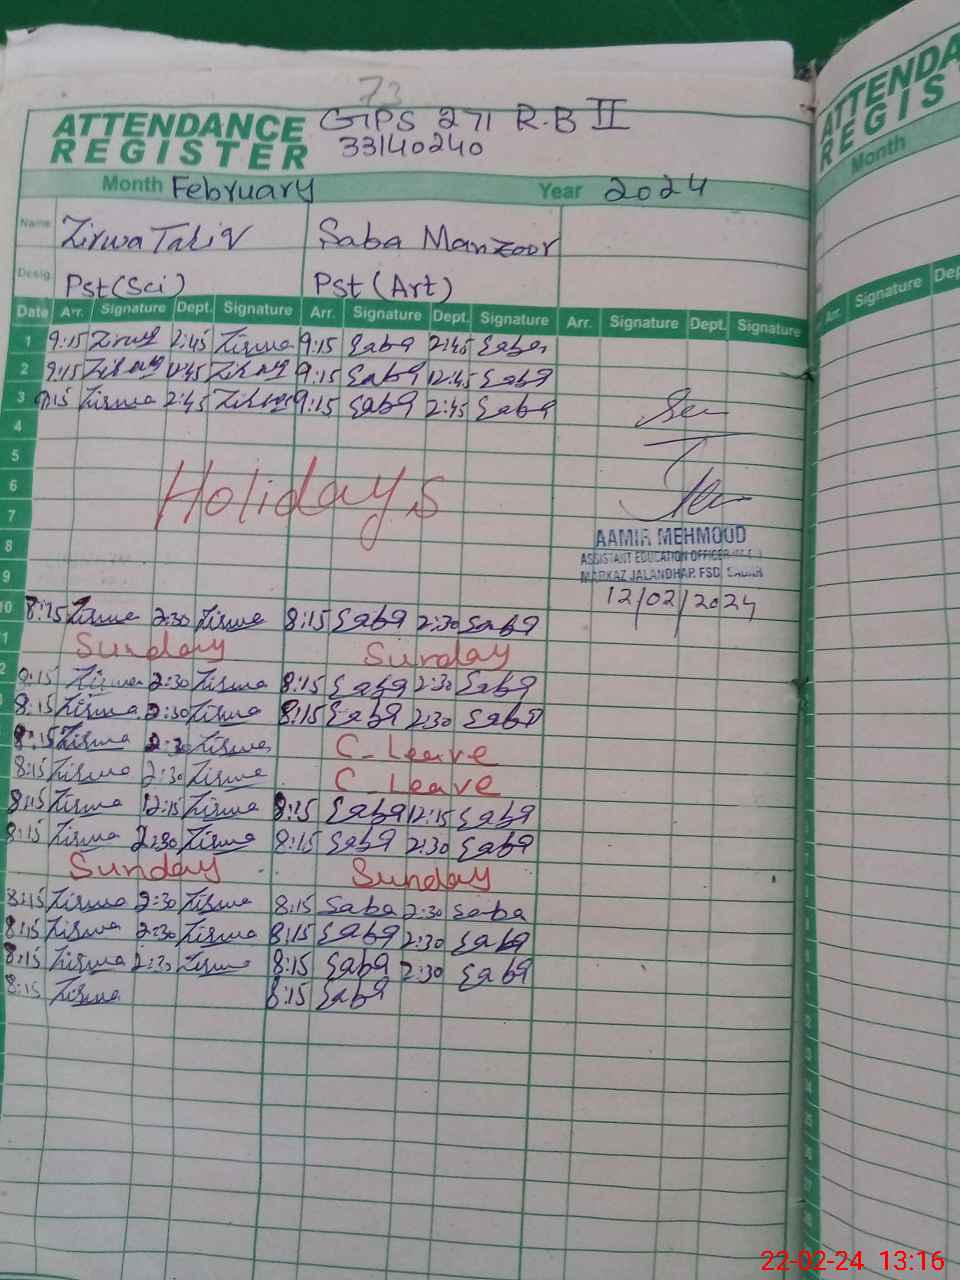 73
ATTENDANCE REGISTER
GPS 271 R.B II
33140240
Month February Year 2024
Name Zirwa Tariq Saba Manzoor
Desig. Pst (Sci) Pst (Art)
Date Arr. Signature Dept. Signature Arr. Signature Dept. Signature Arr. Signature Dept. Signature
1 9:15 Zirwa 2:45 Zirwa 9:15 Saba 2:45 Saba
2 9:15 Zirwa 12:45 Zirwa 9:15 Saba 12:45 Saba
3 9:15 Zirwa 2:45 Zirwa 9:15 Saba 2:45 Saba
4
5
6
7
Holidays
8
9
AAMIR MEHMOOD
ASSISTANT EDUCATION OFFICER
MARKAZ JALANDHAR FSD, SADAR
12/02/2024
10 8:15 Zirwa 2:30 Zirwa 8:15 Saba 2:30 Saba
Sunday Sunday
8:15 Zirwa 2:30 Zirwa 8:15 Saba 2:30 Saba
8:15 Zirwa 2:30 Zirwa 8:15 Saba 2:30 Saba
8:15 Zirwa 2:30 Zirwa C_Leave
8:15 Zirwa 2:30 Zirwa C_Leave
8:15 Zirwa 12:15 Zirwa 8:15 Saba 12:15 Saba
8:15 Zirwa 2:30 Zirwa 8:15 Saba 2:30 Saba
Sunday Sunday
8:15 Zirwa 2:30 Zirwa 8:15 Saba 2:30 Saba
8:15 Zirwa 2:30 Zirwa 8:15 Saba 2:30 Saba
8:15 Zirwa 2:30 Zirwa 8:15 Saba 2:30 Saba
8:15 Zirwa 8:15 Saba
ATTENDA
REGIS
Month
Arr. Signature Dep
22-02-24 13:16